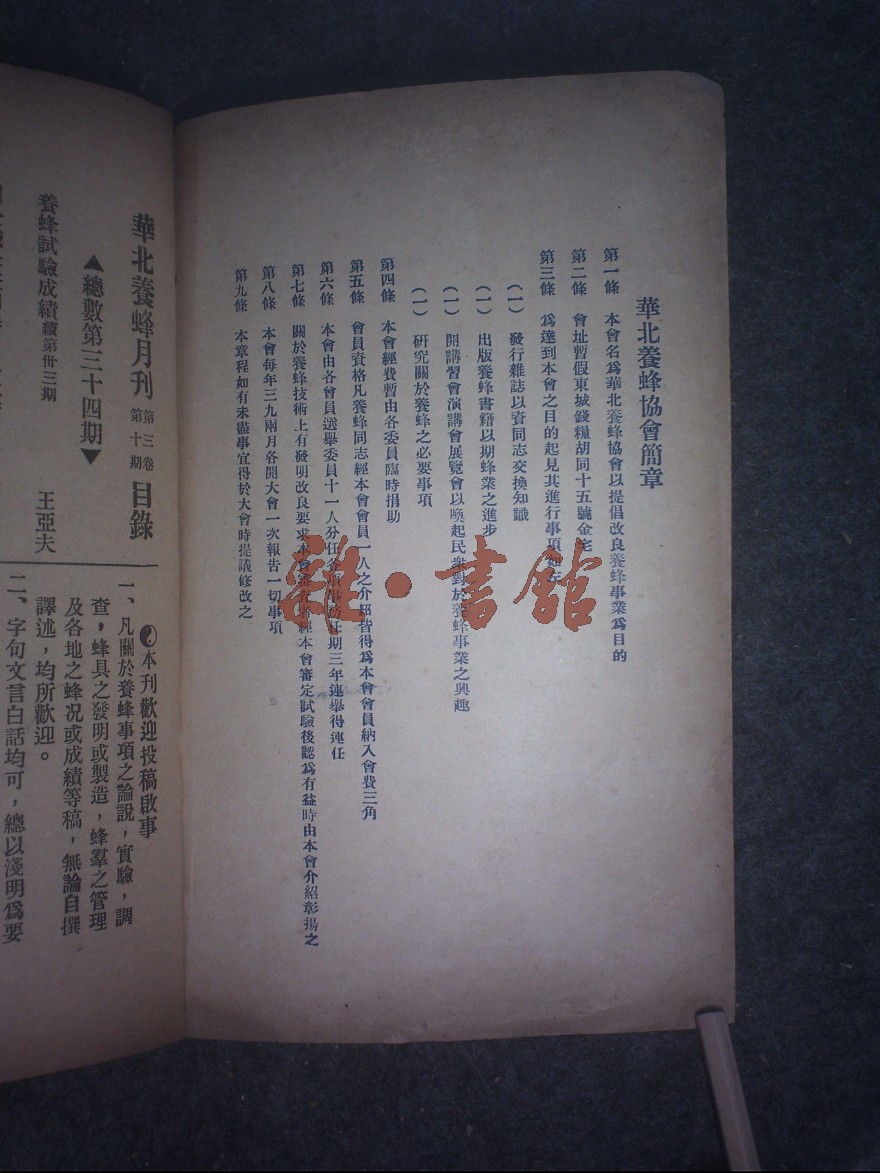 華北養蜂協會簡章
第一條　本會名爲華北養蜂協會以提倡改良養蜂事業爲目的
第二條　會址暫假東城錢糧胡同十五號金宅
第三條　爲達到本會之目的起見其進行事項如左
（一）　發行雜誌以資同志交換知識
（一）　出版養蜂書籍以期蜂業之進步
（一）　開講習會演講會展覽會以喚起民衆對於養蜂事業之興趣
（一）　研究關於養蜂之必要事項
第四條　本會經費暫由各委員臨時捐助
第五條　會員資格凡養蜂同志經本會會員一人之介紹皆得爲本會會員納入會費三角
第六條　本會由各會員選舉委員十一人分任各項事務任期三年連舉得連任
第七條　關於養蜂技術上有發明改良要求本會審查者經本會審定試驗後認爲有益時由本會介紹彰揚之
第八條　本會每年三九兩月各開大會一次報告一切事項
第九條　本章程如有未盡事宜得於大會時提議修改之
雜·書館
華北養蜂月刊 第三卷 第十期 目錄
▲總數第三十四期▼
養蜂試驗成績續第卅三期　王亞夫
本刊歡迎投稿啟事
一、凡關於養蜂事項之論說，實驗，調
查，蜂具之發明或製造，蜂羣之管理
及各地之蜂况或成績等稿，無論自撰
譯述，均所歡迎。
二、字句文言白話均可，總以淺明爲要